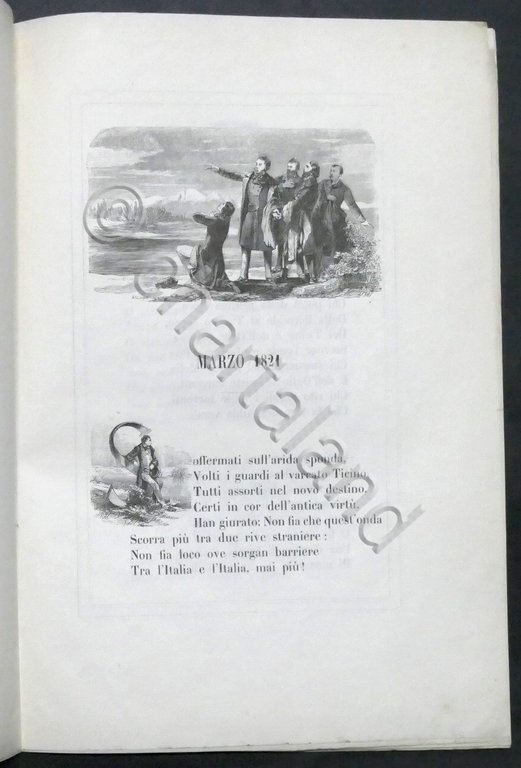 MARZO 1821
Soffermati sull'arida sponda,
Volti i guardi al varcato Ticino,
Tutti assorti nel novo destino,
Certi in cor dell'antica virtù,
Han giurato: Non fia che quest'onda
Scorra più tra due rive straniere:
Non fia loco ove sorgan barriere
Tra l'Italia e l'Italia, mai più!
© chartaland